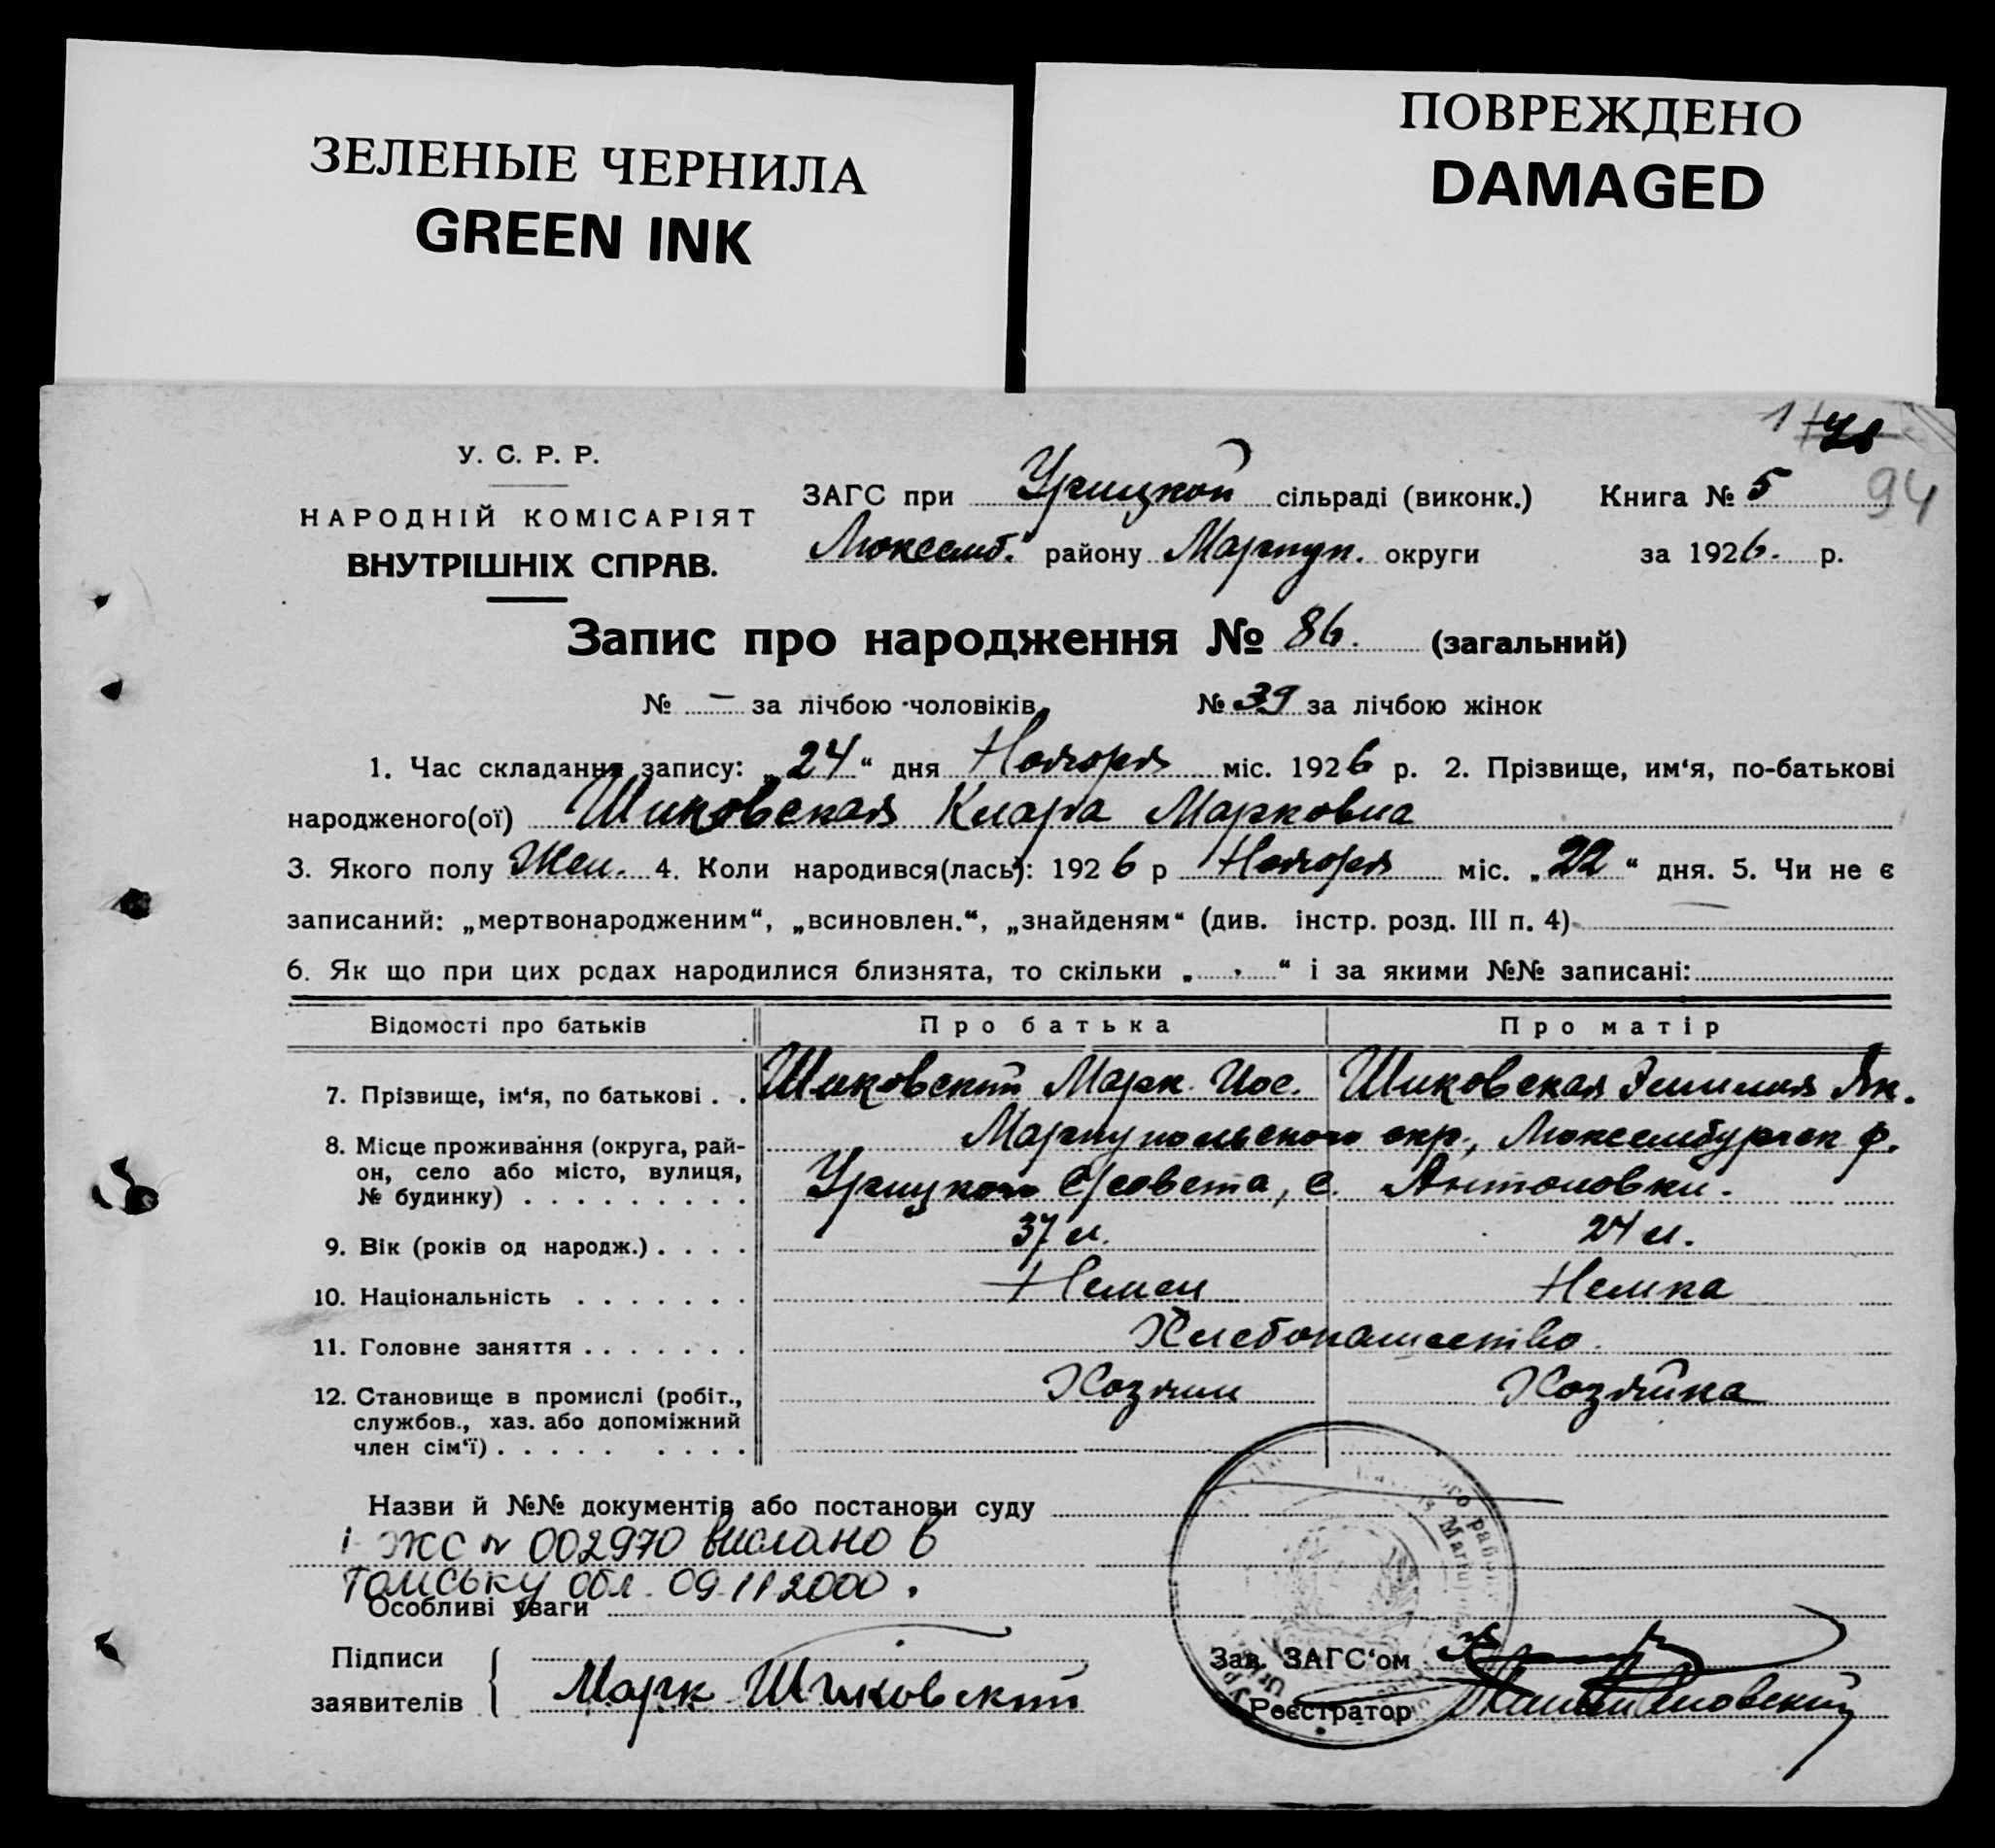 ЗЕЛЕНЫЕ ЧЕРНИЛА
GREEN INK
ПОВРЕЖДЕНО
DAMAGED
94
У. С. Р. Р.
НАРОДНІЙ КОМІСАРІЯТ
ВНУТРІШНІХ СПРАВ.
ЗАГС при Урицкой сільраді (виконк.) Книга № 5
Люксемб. району Мариуп. округи за 1926. р.
Запис про народження № 86. (загальний)
№ – за лічбою чоловіків № 39 за лічбою жінок
1. Час складання запису: „24“ дня Ноября міс. 1926 р. 2. Прізвище, им‘я, по-батькові
народженого(ої) Шиковская Клара Марковна
3. Якого полу Жен. 4. Коли народився(лась): 1926 р Ноября міс. „22“ дня. 5. Чи не є
записаний: „мертвонародженим“, „всиновлен.“, „знайденям“ (див. інстр. розд. III п. 4)
6. Як що при цих родах народилися близнята, то скільки „ “ і за якими №№ записані:
Відомості про батьків Про батька Про матір
7. Прізвище, ім‘я, по батькові . . Шиковский Марк Иос. Шиковская Эмилия Як.
8. Місце проживання (округа, рай-
он, село або місто, вулиця,
№ будинку) . . . . . . . . .
Мариупольского окр., Люксембургск р.
Урицкого С/совета, с. Антоновки.
9. Вік (років од народж.) . . . . 37 л. 24 л.
10. Національність . . . . . . . Немец Немка
11. Головне заняття . . . . . . . Хлебопашество.
12. Становище в промислі (робіт.,
службов., хаз. або допоміжний
член сім‘ї) . . . . . . . . .
Хозяин Хозяйка
Назви й №№ документів або постанови суду
І ЖС № 002970 вислано в
Томську обл. 09 11 2000.
Особливі уваги
Підписи
заявителів
Марк Шиковский
Зав. ЗАГС‘ом
Реєстратор